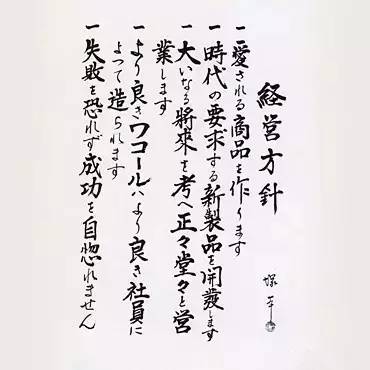 経営方針
一愛される商品を作ります
一時代の要求する新製品を開發します
一大いなる將來を考へ正々堂々と営
業します
一より良きワコールハより良き社員に
よつて造られます
一失敗を恐れず成功を自惚れません
塚本